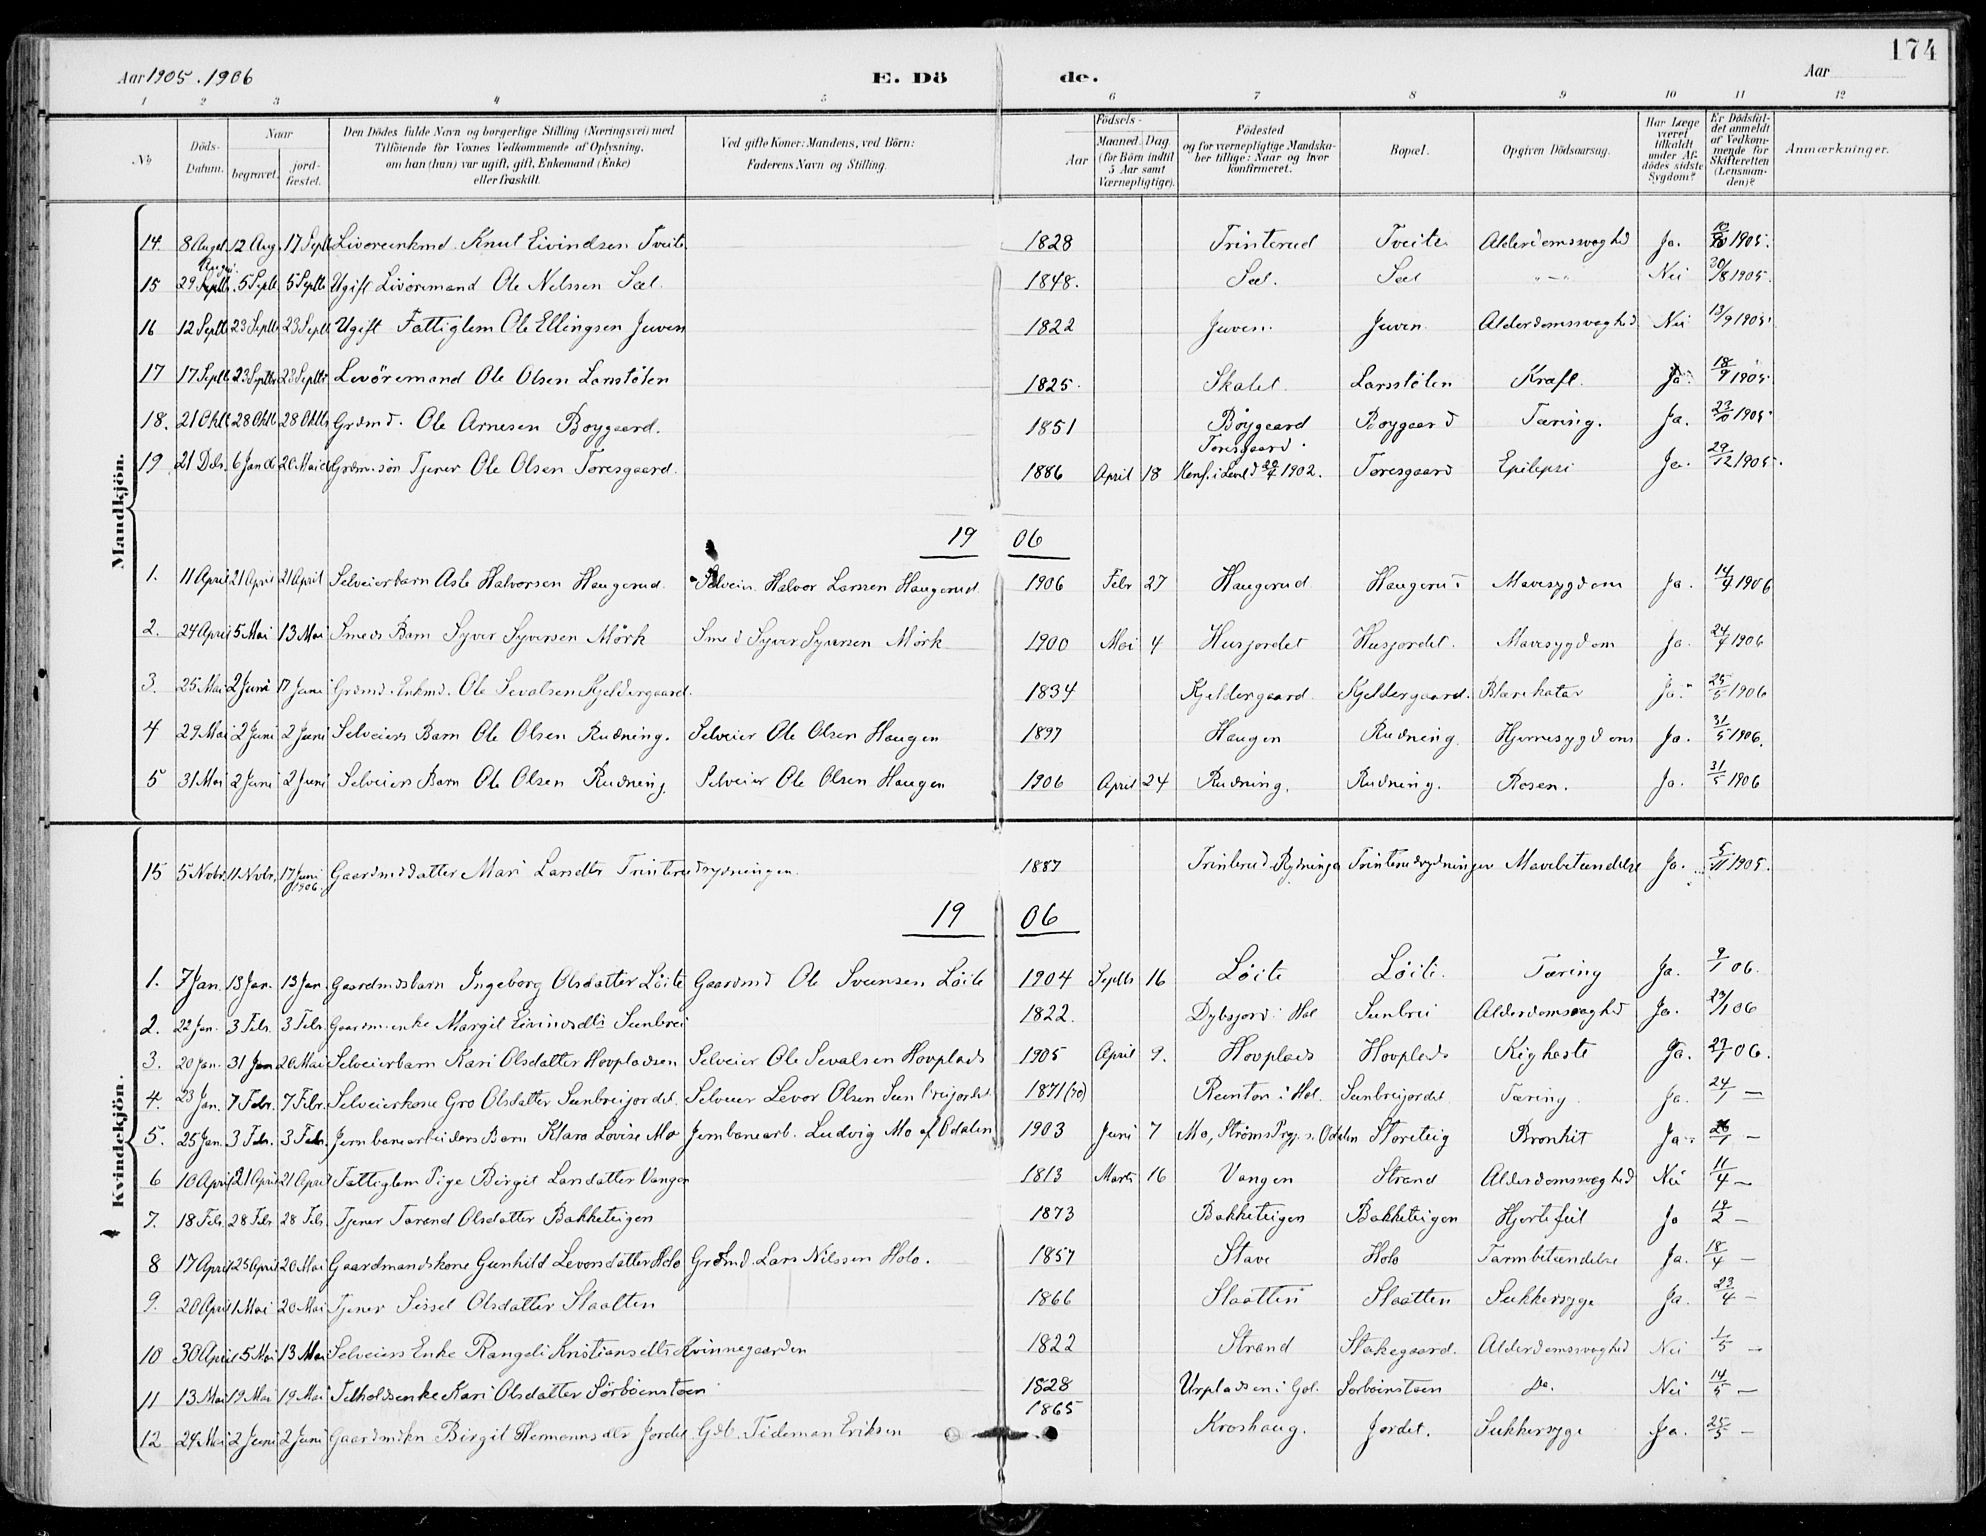 174
Aar 1905. 1906 E. Dö de. Aar
1 2 3 4 5 6 7 8 9 10 11 12
No
Döds-Datum.
Naar
begravet.
jord-fæstet.
Den Dödes fulde Navn og borgerlige Stilling (Næringsvei) med
Tilföiende for Voxnes Vedkommende af Oplysning,
om han (hun) var ugift, gift, Enkemand (Enke)
eller fraskilt.
Ved gifte Koner: Mandens, ved Börn:
Faderens Navn og Stilling.
Födsels-
Aar
Maaned. Dag.
(for Börn indtil
5 Aar samt
Værnepligtige).
Födested
og for værnepligtige Mandska-
ber tillige: Naar og hvor
konfirmeret.
Bopæl.
Opgiven Dödsaarsag.
Har Læge
været
tilkaldt
under Af-
dödes sidste
Sygdom?
Er Dödsfal-
det anmeldt
af Vedkom-
mende for
Skifteretten
(Lensman-
den)?
Anmærkninger.
Mandkjön.
14. 8 Augst 12 Aug. 17 Septb Livöreenkmd. Knut Eivindsen Tveito 1828 Trinterud Tveito Alderdomssvaghed Ja. 1905.
August
15 29 Septb. 5 Septb 5 Septb Ugift Livöremand Ole Nelssen Sæl. 1848. Sæl. Sæl "—" Nei 30/8 1905.
16 12 Septb 23 Septb 23 Septb Ugift Fattiglem Ole Ellingsen Juven 1822 Juven. Juven. Alderdomssvaghed Nei 13/9 1905.
17 17 Septb 23 Septbr 23 Septb Levöremand Ole Olsen Larsstölen 1825. Skalet Larsstölen Kræft. Ja. 18/9 1905
18. 21 Oktb 28 Oktb 28 Oktb Grdmd. Ole Arnesen Böygaard. 1851 Böygaard Boygaard Tæring. Ja. 23/10 1905
19 21 Debr. 6 Jan 06 20 Mai 06 Grdm.sön Tjener Ole Olsen Toresgaard. 1886 April 18 Toresgaard. Konf. i Leveld 20/4 1902. Toresgaard Epilepsi Ja. 29/12 1905.
19 06
1. 11 April 21 April 21 April Selveierbarn Asle Halvorsen Haugerud. Selveier Halvor Larsen Haugerud. 1906 Febr 27 Haugerud Haugerud Mavesygdom Ja. 14/4 1906
2. 24 April 5 Mai 13 Mai Smeds Barn Syver Syversen Mörk Smed Syver Syversen Mörk 1900 Mai 4 Husjordet Husjordet. Mavesygdom Ja. 24/4 1906
3. 25 Mai 2 Juni 17 Juni Grdmd. Enkmd. Ole Sevalsen Kjeldergaard. 1834 Kjeldergaard. Kjeldergaard. Blærekatar Ja. 25/5 1906
4 29 Mai 2 Juni 2 Juni Selveiers Barn Ole Olsen Rudning. Selveier Ole Olsen Haugen 1897 Haugen Rudning. Hjernesygdom Ja. 31/5 1906.
5 31 Mai 2 Juni 2 Juni Selveiers Barn Ole Olsen Rudning Selveier Ole Olsen Haugen 1906 April 24 Rudning. Rudning. Rosen. Ja. 31/5 1906
Kvindekjön.
15 5 Novbr. 11 Novbr. 17 Juni 1906. Gaardmdsdatter Mari Larsdtr Trinterudrydningen. 1887 Trinterud-Rydningen Trinterudrydningen Mavebetændelse Ja. 5/11 1905.
19 06
1. 7 Jan. 13 Jan. 13 Jan. Gaardmdsbarn Ingeborg Olsdatter Löite Gaardmd Ole Svensen Löite 1904 Septb 16 Löite Löite. Tæring Ja. 9/1 06.
2. 22 Jan. 3 Febr. 3 Febr. Gaardm.enke Margit Eivindsdtr Sunbrei 1822. Dybsjord i Hol Sunbrei Alderdomssvaghed Ja. 23/1 06
3. 20 Jan. 31 Jan 20 Mai Selveierbarn Kari Olsdatter Hovpladsen Selveier Ole Sevalsen Hovplads 1905 April 9. Hovplads Hovplads Kighoste Ja. 06.
4. 23 Jan. 7 Febr. 7 Febr. Selveierkone Gro Olsdatter Sunbreijordet. Selveier Levor Olsen Sunbreijordet 1871 (70) Reinton i Hol. Sunbreijordet Tæring Ja. 24/1 —
5. 25 Jan. 3 Febr. 3 Febr. Jernbanearbeiders Barn Klara Lovise Mo Jernbanearb. Ludvig Mo af Odalen 1903 Juni 7 Mo, Ströms Prgj. s. Odalen Storeteig Bronkit Ja. 26/1 —
6 10 April 21 April 21 April Fattiglem Pige Birgit Larsdatter Vangen 1813 Marts 16 Vangen Strand Alderdomssvaghed Nei 11/4 —
7. 18 Febr. 28 Febr 28 Febr. Tjener Torand Olsdatter Bakketeigen 1873 Bakketeigen Bakketeigen Hjertefeil Ja 19/2 —
8 17 April 25 April 20 Mai Gaardmandskone Gunhild Levorsdatter Holo Grdmd. Lars Nilssen Holo. 1857 Stave Holo Tarmbetændelse Ja. 18/4 —
9. 20 April 1 Mai 20 Mai Tjener Sissel Olsdatter Slaatten 1866 Slaatten Slaatten Sukkersyge Ja. 23/4 —
10 30 April 5 Mai 13 Mai Selveiers Enke Rangdi Kristiansdtr Kvinnegaarden 1822 Strand Stakegaard. Alderdomssvaghed Nei 1/5 —
11 13 Mai 19 Mai 19 Mai Enke Kari Olsdatter Sörböenstöen 1828 Urpladsen i Gol. Sorboinstoen Do. Nei 14/5 —
12 24 Mai 2 Juni 2 Juni Gaardmdkn Birgit Hermannsdtr Jordet Gdb. Tideman Eriksen 1865 Kroshaug. Jordet. Sukkersyge Ja. 25/5 —